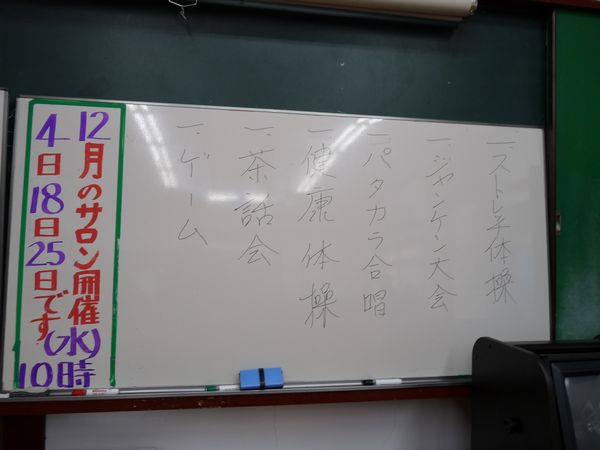 一.ストレッチ体操
一.ジャンケン大会
一.パタカラ合唱
一.健康体操
一.茶話会
一.ゲーム
12月のサロン開催(水)
4日18日25日です
10時